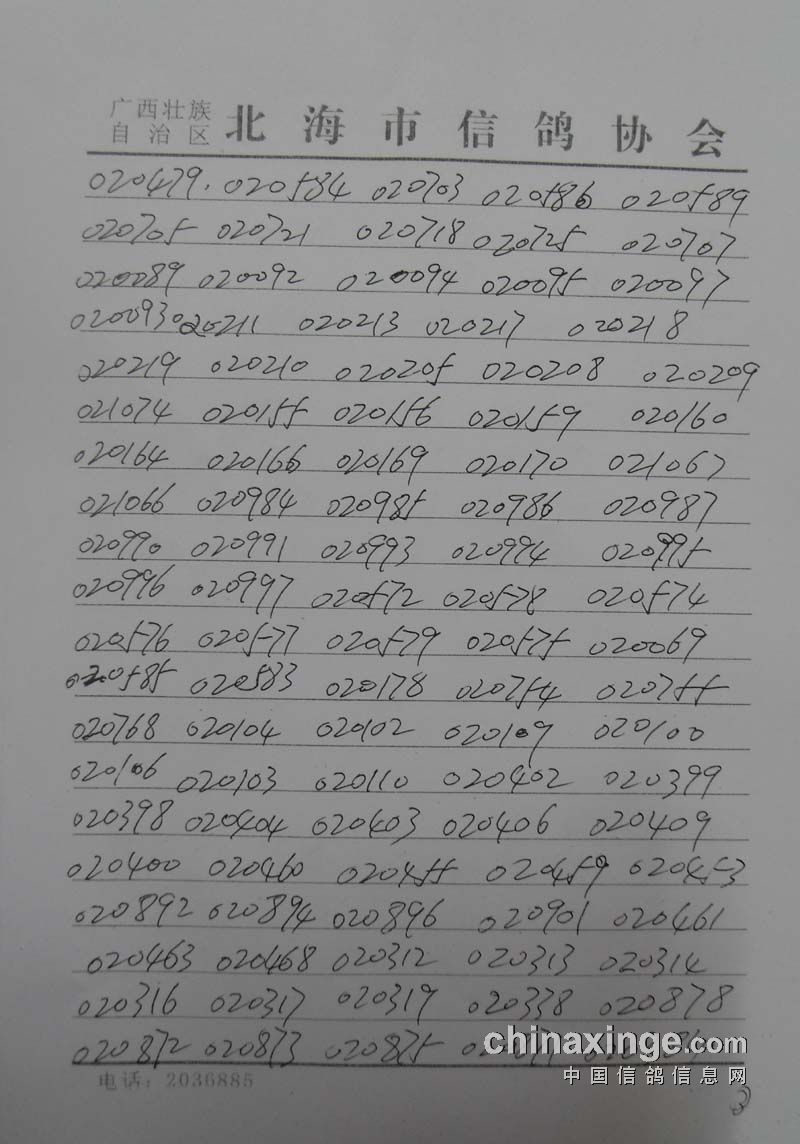 广西壮族
自治区 北海市信鸽协会
020479. 020584 020703 020586 020589
020705 020721 020718 020725 020707
020089 020092 020094 020095 020097
020093 020211 020213 020217 020218
020219 020210 020205 020208 020209
021074 020155 020156 020159 020160
020164 020166 020169 020170 021067
021066 020984 020985 020986 020987
020990 020991 020993 020994 020995
020996 020997 020572 020578 020574
020576 020577 020579 020575 020069
020585 020583 020178 020754 020755
020768 020104 020102 020109 020100
020106 020103 020110 020402 020399
020398 020404 020403 020406 020409
020400 020460 020455 020459 020453
020892 020894 020896 020901 020461
020463 020468 020312 020313 020314
020316 020317 020319 020338 020878
020872 020873 020875
chinaxinge.com
中国信鸽信息网
电话：2036885
3